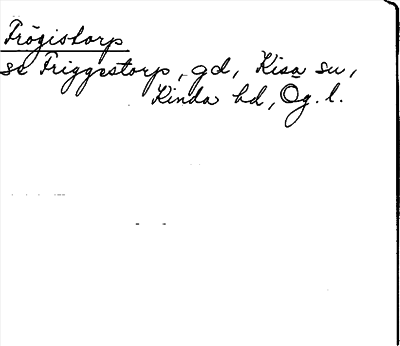 Frögistorp
se Friggestorp, gd, Kisa sn,
Kinda hd, Ög. l.